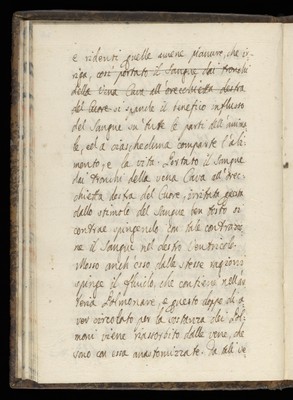 e ridenti quelle amene pianure, che ir-
riga, così portato il Sangue dai tronchi
della Vena Cava all'orecchietta destra
del Cuore si spande il benefico influsso
del Sangue su tutte le parti dell'anima
le, ed a ciascheduna comparte l'ali
mento, e la vita. Portato il Sangue
dai tronchi della vena Cava all'orec-
chietta destra del Cuore, irritata questa
dallo stimolo del Sangue ben tosto si
contrae spingendo con tale contrazio
ne il Sangue nel destro Ventricolo.
Mosso anch'esso dalle stesse ragioni
spinge il fluido, che contiene nell'ar
teria Polmonare, e questo doppo di a
ver circolato per la sostanza dei Pol
moni viene riassorbito dalle vene, che
sono con essa anastomizzate. Da tali ve